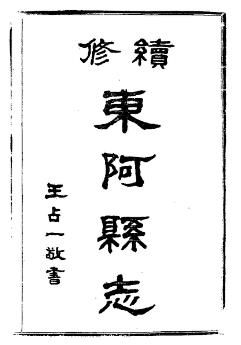 續修
東阿縣志
王占一敬書